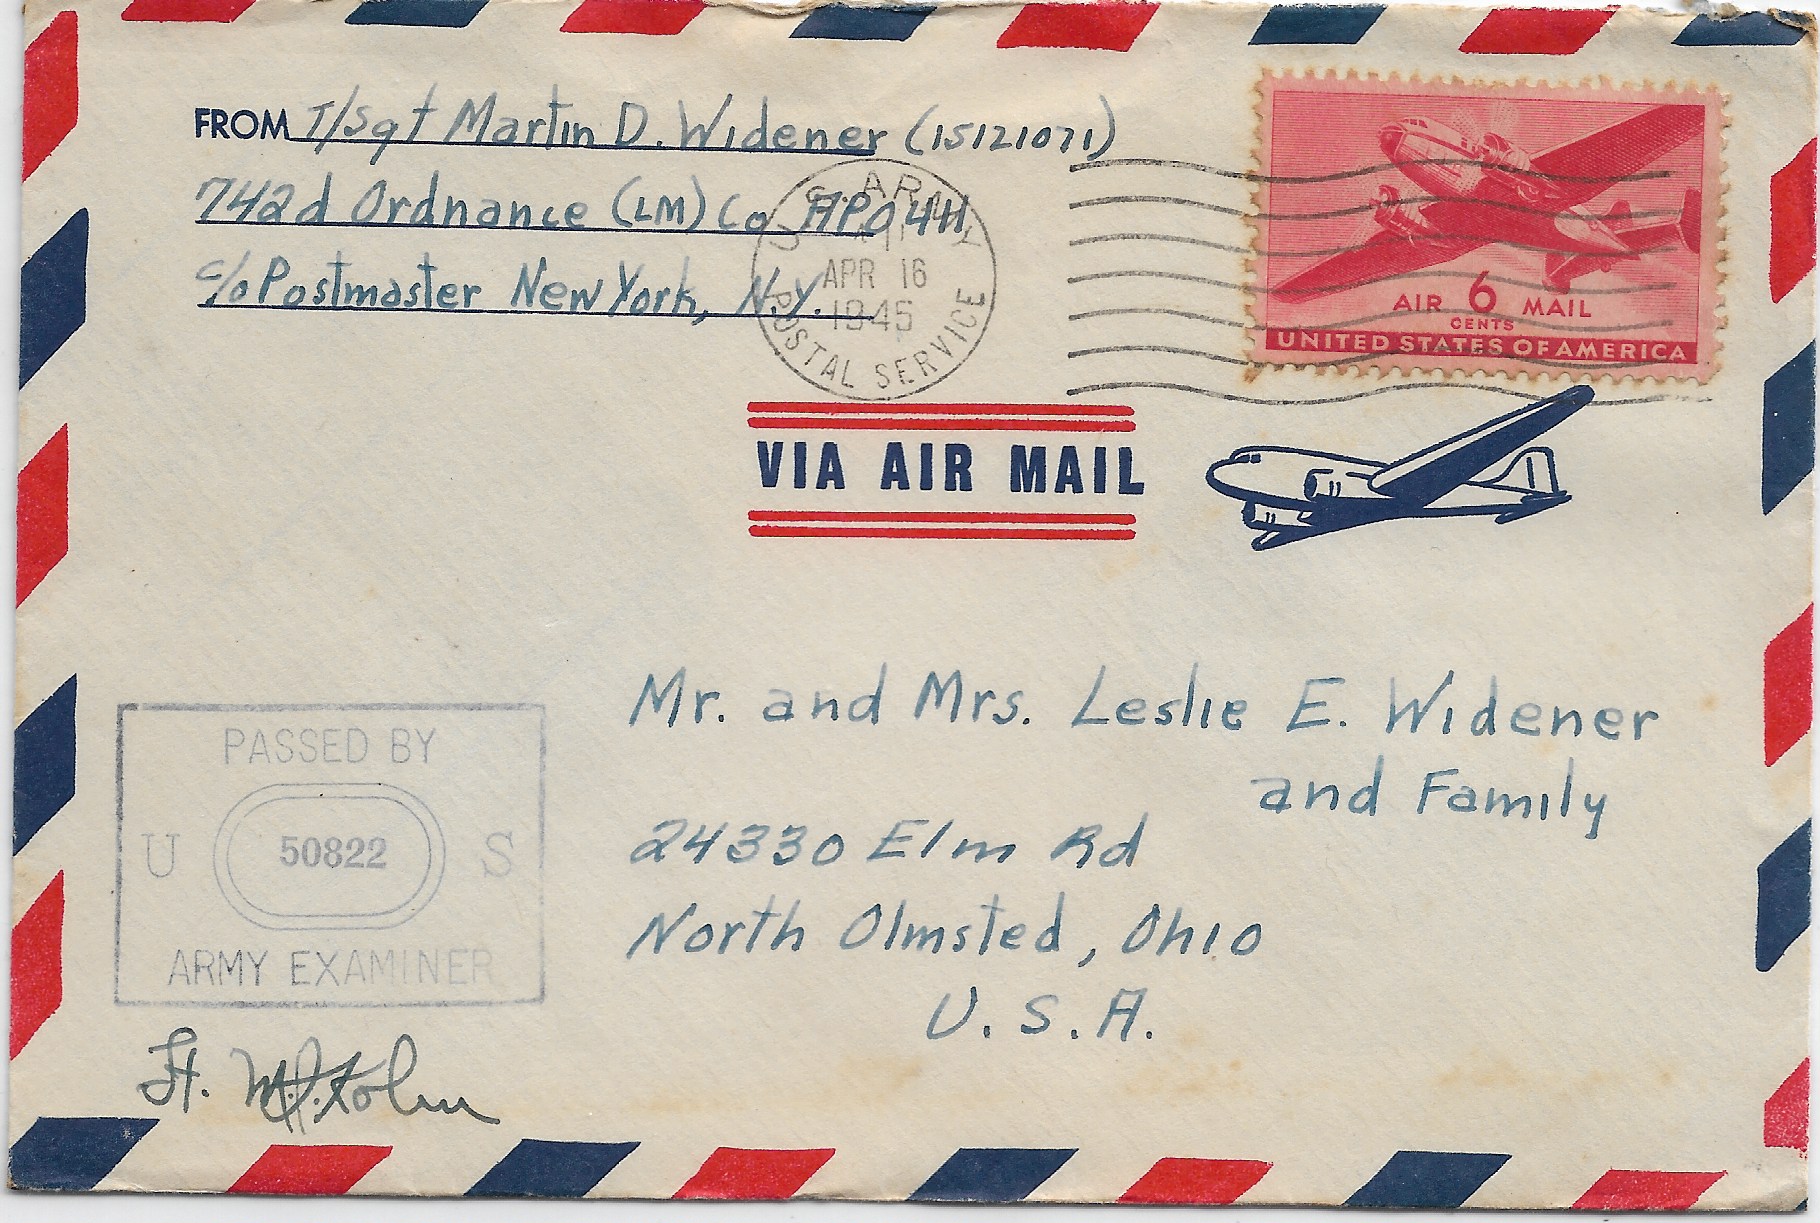 FROM T/Sgt Martin D. Widener (15121071)
742d Ordnance (LM) Co APO 411
c/o Postmaster New York, N.Y.
U.S. ARMY
APR 16
1945
POSTAL SERVICE
AIR 6 MAIL
CENTS
UNITED STATES OF AMERICA
VIA AIR MAIL
Mr. and Mrs. Leslie E. Widener
and Family
24330 Elm Rd
North Olmsted, Ohio
U.S.A.
PASSED BY
U 50822 S
ARMY EXAMINER
Lt.